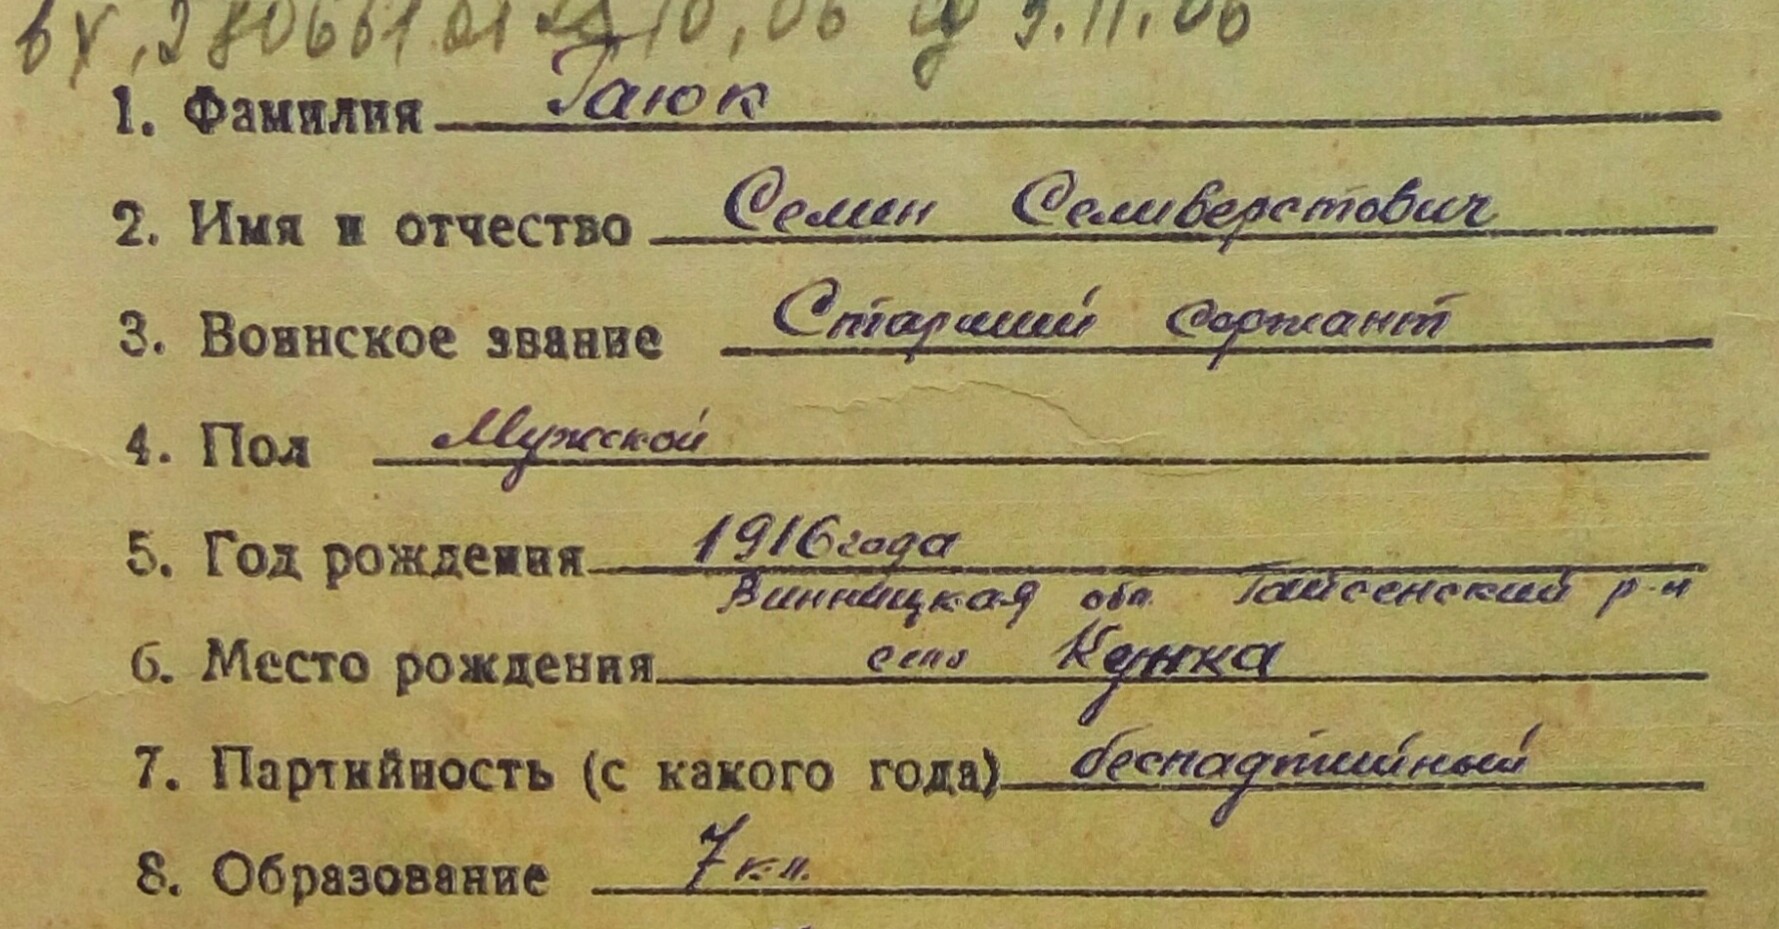 вх. 280661 от 10.06 9.11.06
1. Фамилия Гаюк
2. Имя и отчество Семен Селиверстович
3. Воинское звание Старший сержант
4. Пол Мужской
5. Год рождения 1916 года
Винницкая обл. Гайсенский р-н
6. Место рождения село Кунка
7. Партийность (с какого года) беспартийный
8. Образование 7 кл.